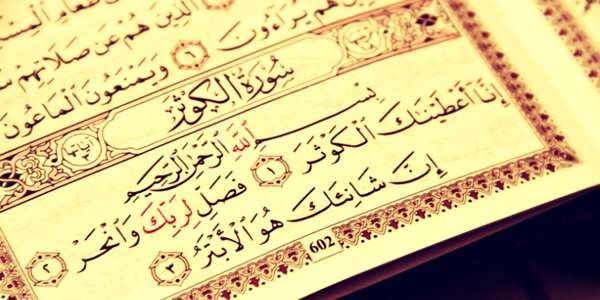 الَّذِينَ هُمْ عَن صَلَاتِهِمْ
هُمْ يُرَآءُونَ ٦ وَيَمْنَعُونَ الْمَاعُونَ
سُورَةُ الْكَوْثَرِ
بِسْمِ اللَّهِ الرَّحْمَٰنِ الرَّحِيمِ
إِنَّا أَعْطَيْنَٰكَ الْكَوْثَرَ ١ فَصَلِّ لِرَبِّكَ وَانْحَرْ ٢
إِنَّ شَانِئَكَ هُوَ الْأَبْتَرُ ٣
602